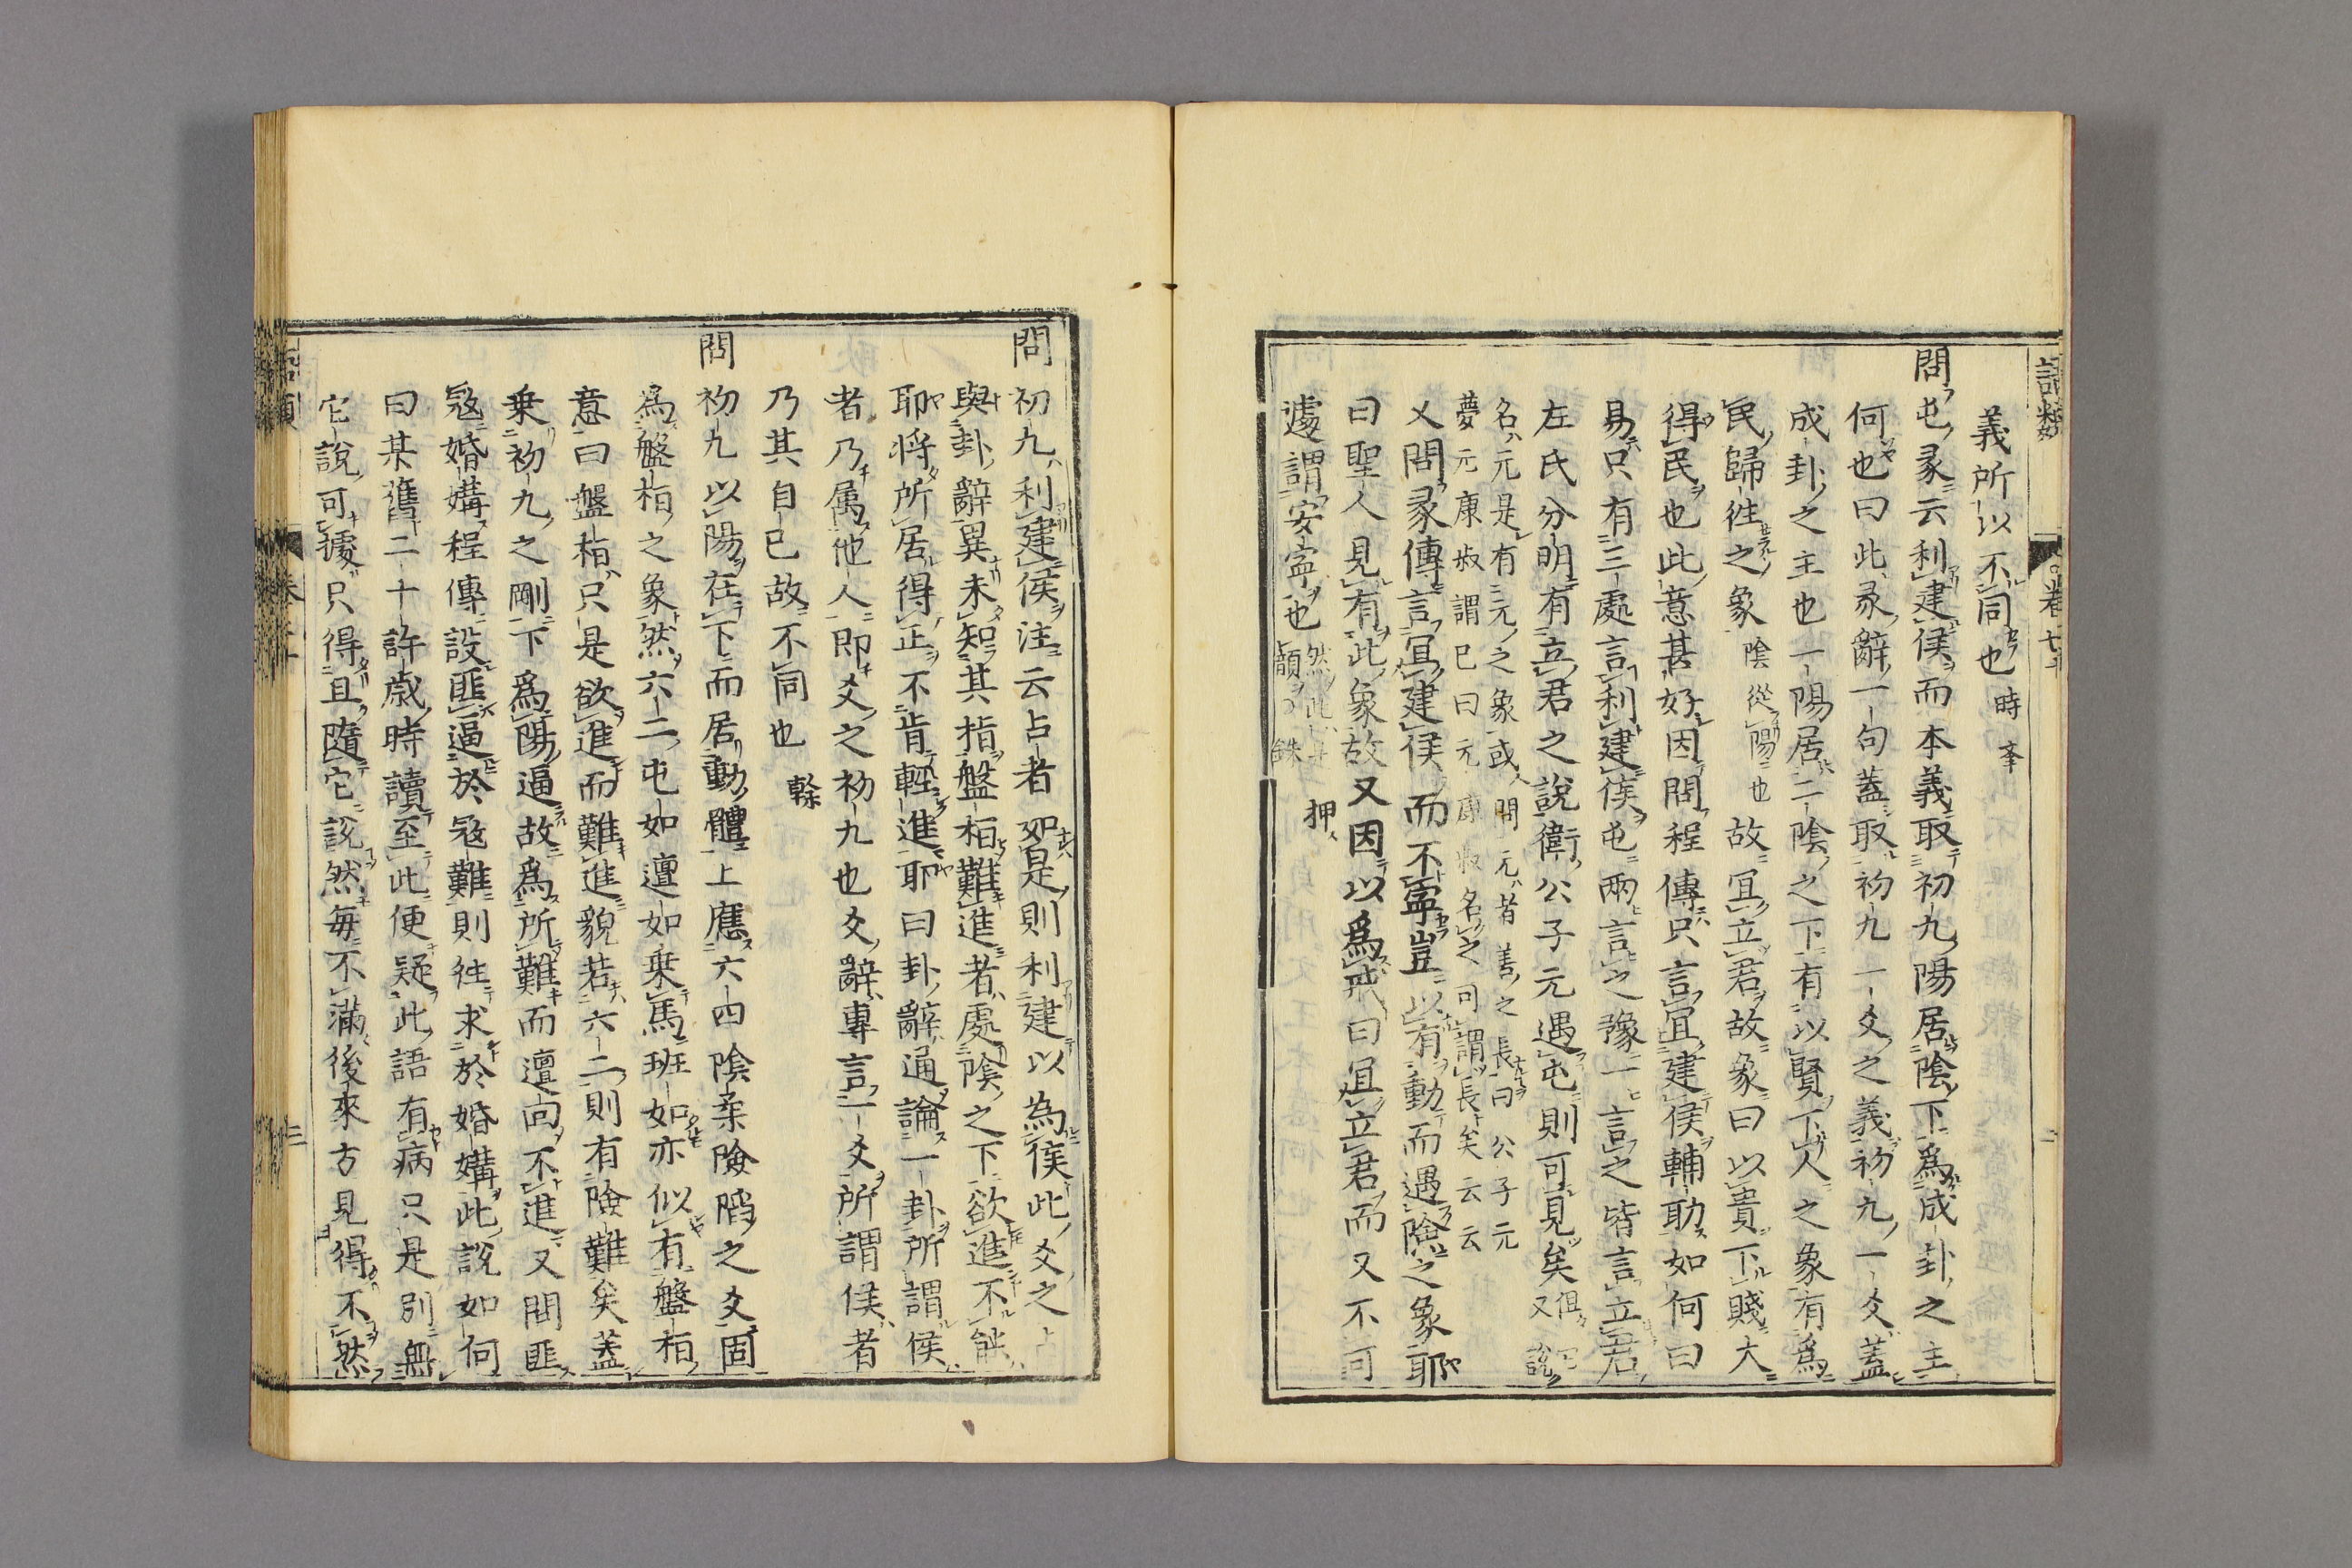 語類
卷七十
義所以不同也 時夆
問屯彖云利建侯而本義取初九陽居陰下爲成卦之主
何也曰此彖辭一句蓋取初九一爻之義初九一爻蓋
成卦之主也一陽居二陰之下有以賢下人之象有爲
民歸往之象 陰從陽也 故宜立君故象曰以貴下賤大
得民也此意甚好因問程傳只言宜建侯輔助如何曰
易只有三處言利建侯屯兩言之豫一言之皆言立君
左氏分明有立君之說衛公子元遇屯則可見矣 但它又說
名元是有元之象或問元者善之長曰公子元
夢元康叔謂已曰元康叔名之可謂長矣云云
又問彖傳言宜建侯而不寧豈以有動而遇險之象耶
曰聖人見有此象故又因以爲戒曰宜立君而又不可
遽謂安寧也 然此
押
問初九利建侯注云占者如是則利建以為侯此爻之占
與卦辭異未知其指盤桓難進者處陰之下欲進不能
耶將所居得正不肯輕進耶曰卦辭通論一卦所謂侯
者乃属他人即爻之初九也爻辭專言一爻所謂侯者
乃其自已故不同也 榦
問初九以陽在下而居動體上應六四陰柔險陷之爻固
為盤桓之象然六二屯如邅如乘馬班如亦似有盤桓
意曰盤桓只是欲進而難進貌若六二則有險難矣蓋
乗初九之剛下爲陽逼故爲所難而邅回不進又問匪
寇婚媾程傳設匪逼於寇難則往求於婚媾此說如何
曰某舊二十許歲時讀至此便疑此語有病只是別無
它說可據只得且隨它說然每不滿後來方見得不然